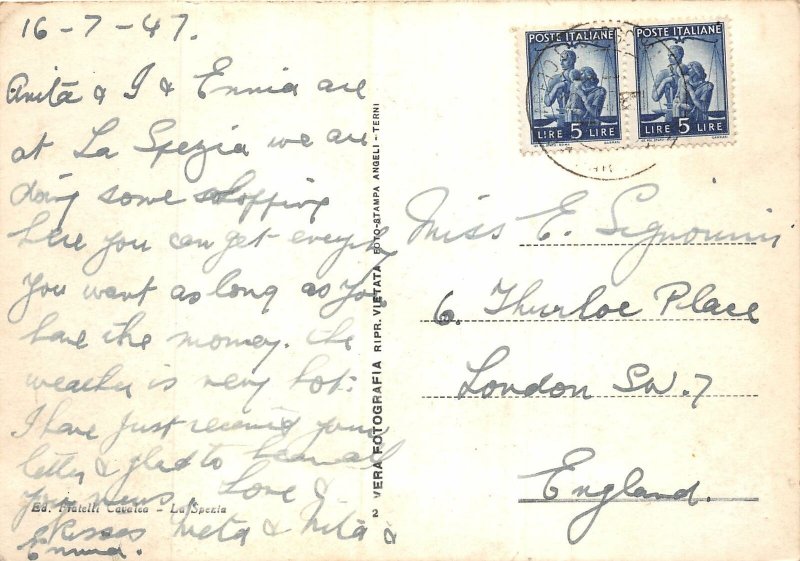 16-7-47.
Anita & I & Ennia are
at La Spezia we are
doing some shopping
here you can get everything
you want as long as you
have the money. the
weather is very hot.
I have just received your
letter & glad to hear all
your news. Love &
Kisses Meta & Nita &
Ennia.
Ed. Fratelli Cavalca - La Spezia
2 VERA FOTOGRAFIA RIPR. VIETATA FOTO-STAMPA ANGELI - TERNI
POSTE ITALIANE
LIRE 5 LIRE
POSTE ITALIANE
LIRE 5 LIRE
Miss E. Signorini
6. Thurloe Place
London SW.7
England.